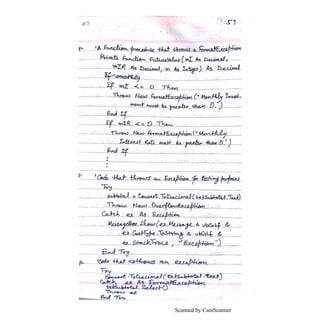 57
57
'A Function procedure that throws a FormatException
Private Function FutureValue (mI As Decimal,
mIR As Decimal, m As Integer) As Decimal
If mI <= 0 Then
Throw New FormatException ("Monthly Invest-
ment must be greater than 0.")
End If
If mIR <= 0 Then
Throw New FormatException ("Monthly
Interest Rate must be greater than 0.")
End If
'Code that throws an Exception for testing purpose
Try
subtotal = Convert.ToDecimal (txtSubtotal.Text)
Throw New OverflowException
Catch ex As Exception
MessageBox.Show (ex.Message & vbCrLf &
ex.GetType.ToString & vbCrLf &
ex.StackTrace, "Exception")
End Try
'Code that rethrows an exception
Try
Convert.ToDecimal (txtSubtotal.Text)
Catch ex As FormatException
txtSubtotal.Select()
Throw ex
End Try
Scanned by CamScanner